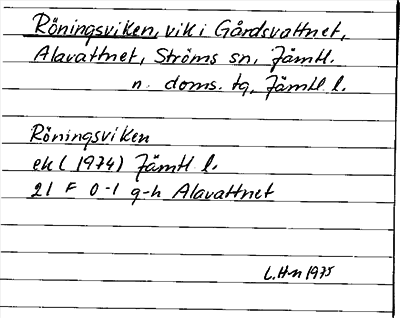 Röningsviken, vik i Gårdsvattnet,
Alavattnet, Ströms sn, Jämtl.
n. doms. tg, Jämtl l.
Röningsviken
ek (1974) Jämtl l.
21 F 0-1 g-h Alavattnet
L.H-n 1975